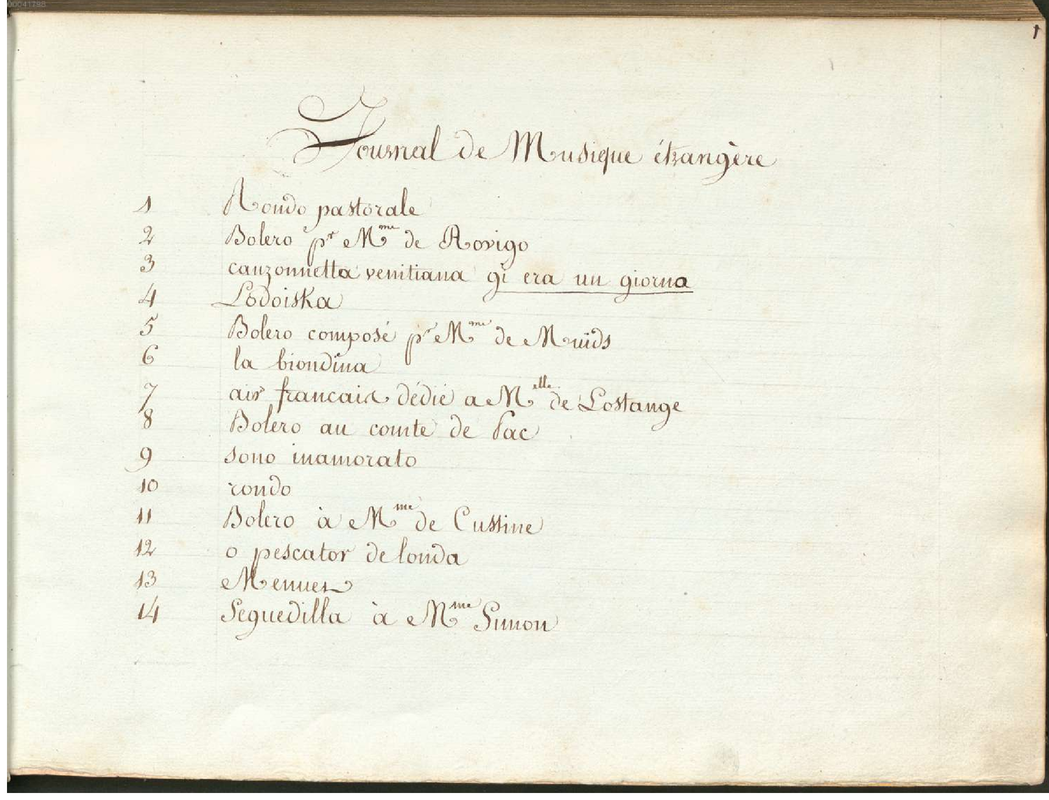 00041198
1
Journal de Musique étrangère
1 Rondo pastorale
2 Bolero pr Mme de Rovigo
3 canzonnetta venitiana gi era un giorno
4 Lodoiska
5 Bolero composé pr Mme de Nuids
6 la biondina
7 air francais dédié a Melle de Lostange
8 Bolero au comte de Pac
9 sono inamorato
10 rondo
11 Bolero à Mme de Custine
12 o pescator de londa
13 Menuet
14 Seguedilla à Mme Simon